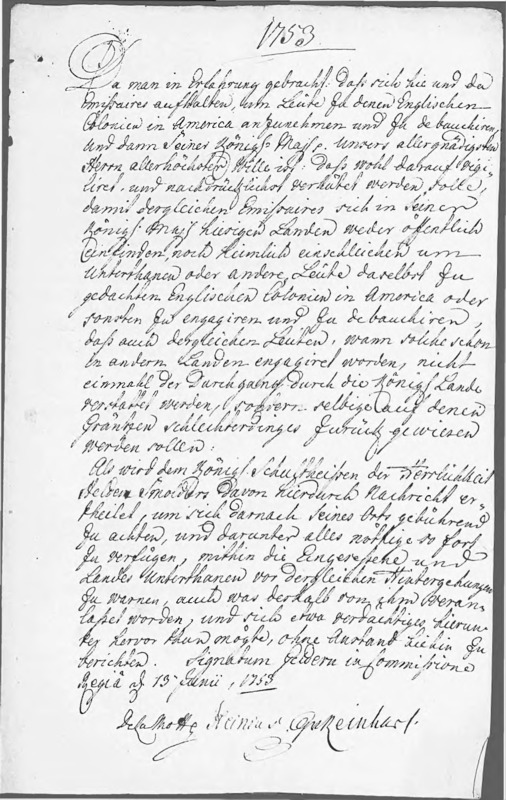 1753
Da man in Erfahrung gebracht: daß sich hie und da
Emissaires aufhalten, um Leüte zu denen Englischen
Colonien in America anzunehmen und zu debauchiren,
und dann Seiner Königl. Maj. Unsers allergnädigsten
Herrn allerhöchster Wille ist: daß wohl darauf vigi-
liret, und nachdrücklichst verhütet werden solle,
damit dergleichen Emissaires sich in Seiner
Königl. Maj. hiesigen Landen weder öffentlich
einfinden, noch heimlich einschleichen um
Unterthanen oder andere Leüte daselbst zu
gedachten Englischen Colonien in America oder
sonsten zu engagiren und zu debauchiren,
daß auch dergleichen Leüten, wann solche schon
in andern Landen engagiret worden, nicht
einmahl der Durchgang durch die Königl. Lande
verstattet werden, sondern selbige auf denen
Gräntzen schlechterdinges zurück gewiesen
werden sollen:
Als wird dem Königl. Schultheissen der Herrlichkeit
davon hierdurch Nachricht er-
theilet, um sich darnach seines Orts gebührend
zu achten, und darunter alles nöthige so fort
zu verfügen, mithin die Eingesessene und
Landes Unterthanen vor dergleichen Hintergehungen
zu warnen, auch was deshalb von ihm veran-
laßet worden, und sich etwa verdächtiges hierun-
ter hervor thun mögte, ohne Anstand hiehin zu
berichten. Signatum Geldern in Commissione
Regiâ d. 13 Junii, 1753
de la Motte Reinhart.